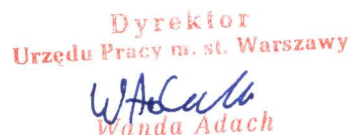 Dyrektor
Urzędu Pracy m. st. Warszawy
Wanda Adach